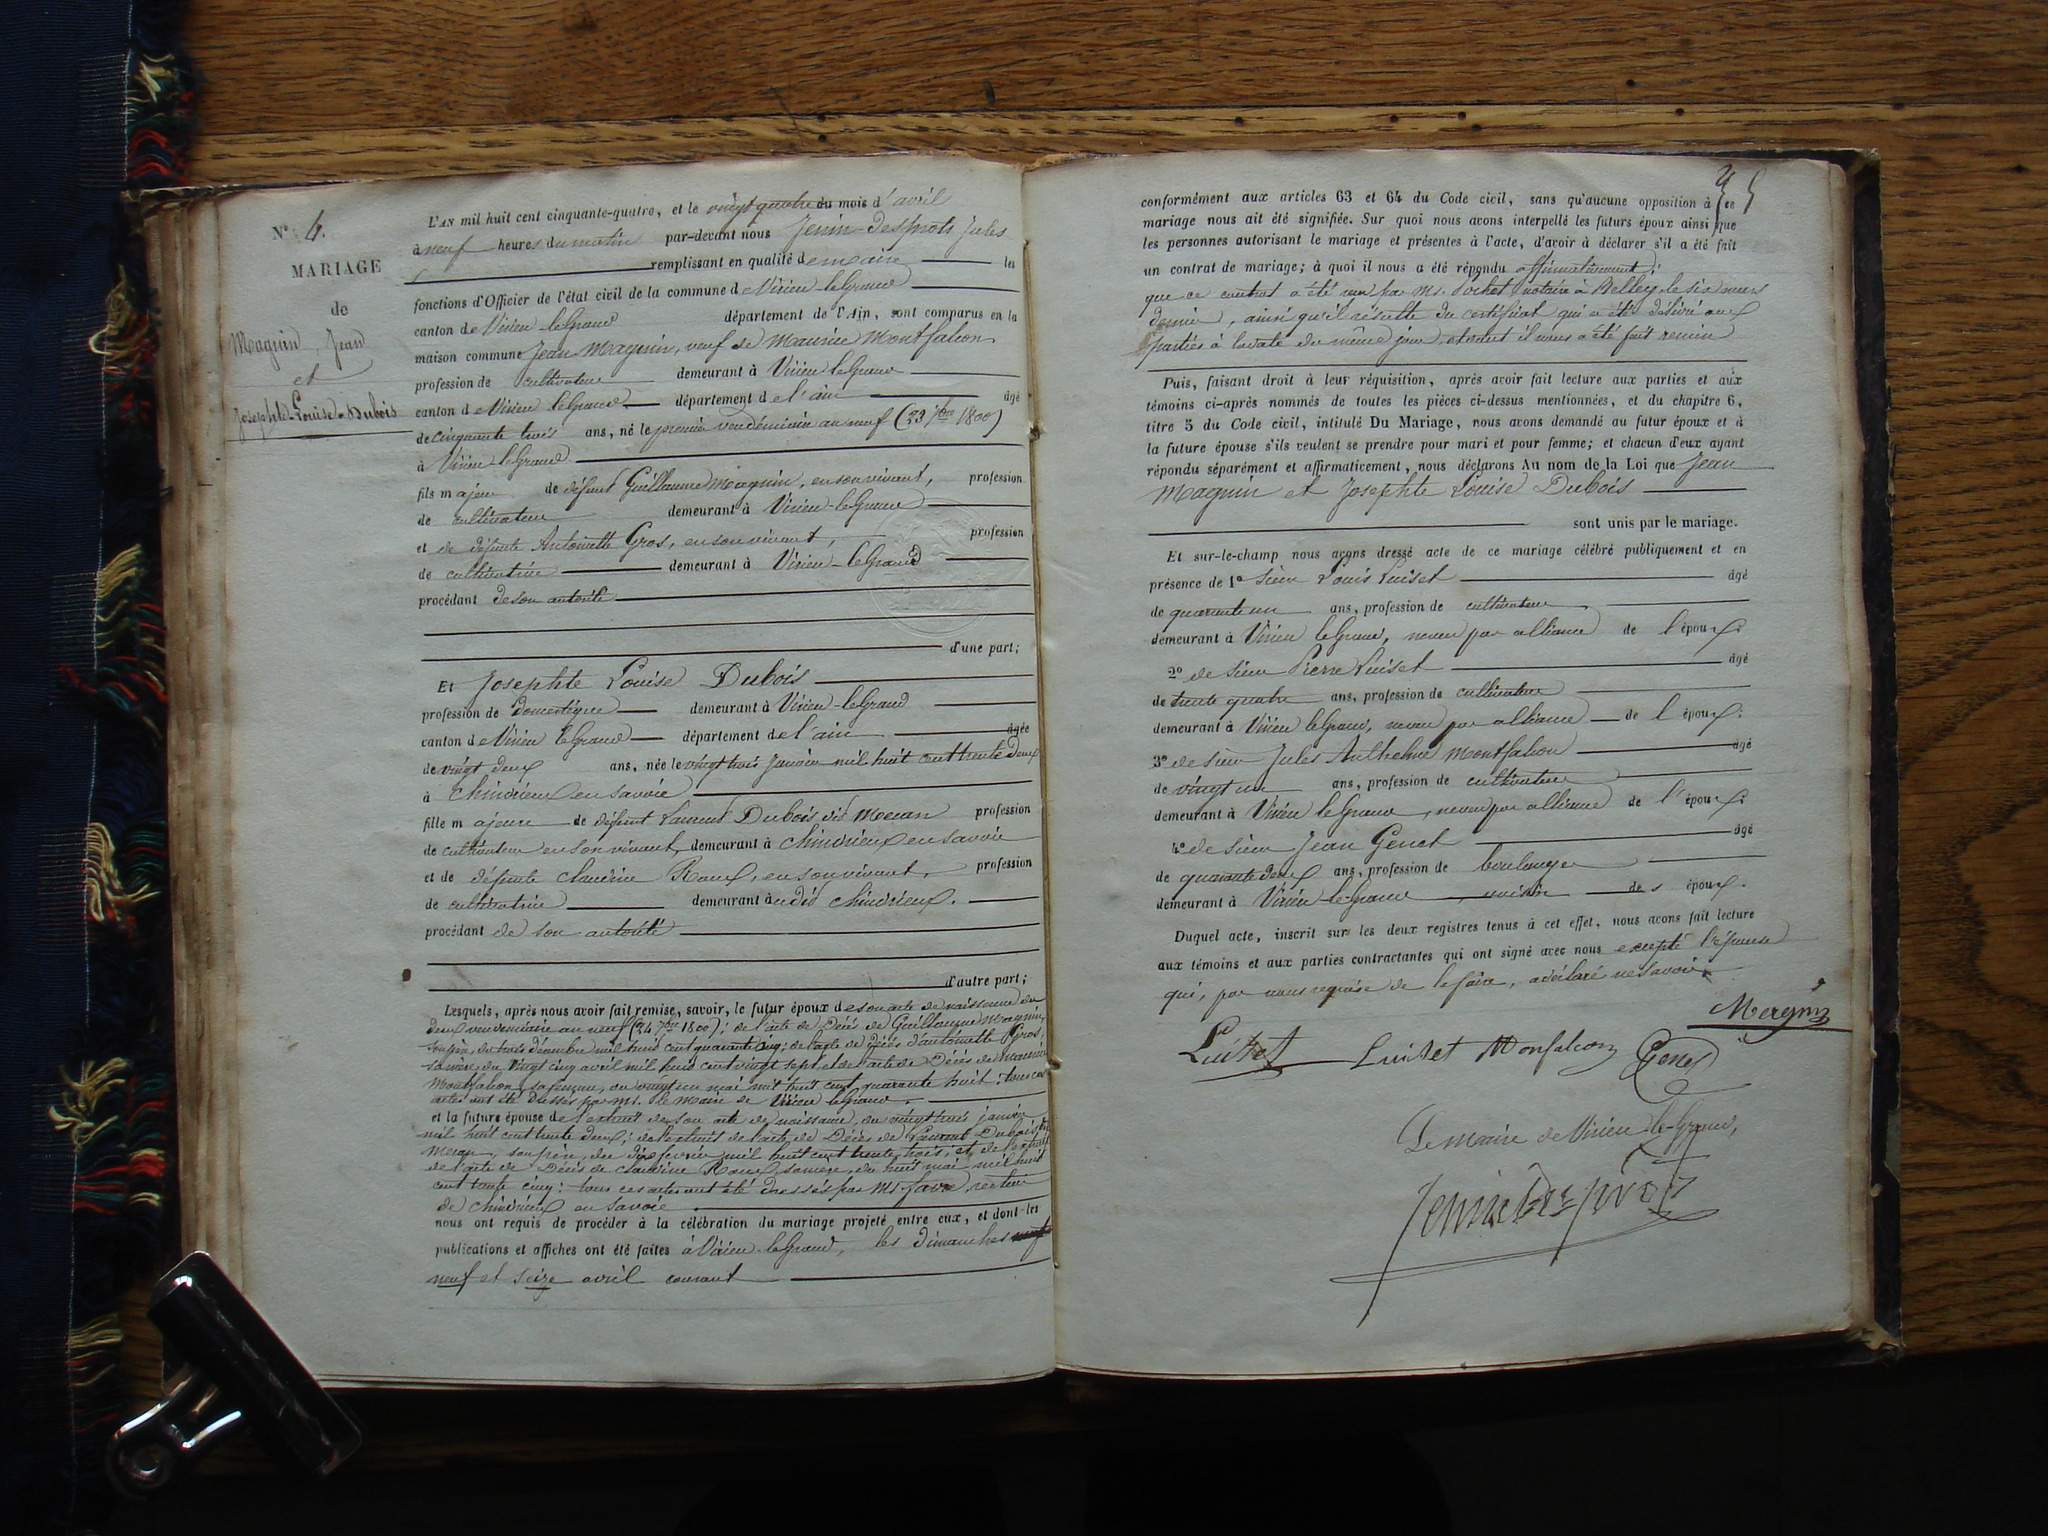 N° 4.
MARIAGE
de
Magnin, Jean
et
Josephte-Louise-Dubois
L'AN mil huit cent cinquante-quatre, et le vingt quatre du mois d'avril
à neuf heures du matin par-devant nous Jenin-Desprots Jules
remplissant en qualité de maire les
fonctions d'Officier de l'état civil de la commune de Virieu-le-Grand
canton de Virieu-le-Grand département de l'Ain, sont comparus en la
maison commune Jean Magnin, veuf de Maurise Montfalcon
profession de cultivateur demeurant à Virieu-le-Grand
canton de Virieu le Grand département de l'ain âgé
de cinquante trois ans, né le premier vendémiaire an neuf (23 7bre 1800)
à Virieu-le-Grand
fils majeur de défunt Guillaume Magnin, en son vivant, profession
de cultivateur demeurant à Virieu-le-Grand
et de défunte Antoinette Gros, en son vivant, profession
de cultivatrice demeurant à Virieu-le-Grand
procédant de son autorité
d'une part;
Et Josephte Louise Dubois
profession de domestique demeurant à Virieu-le-Grand
canton de Virieu le Grand département de l'ain âgée
de vingt deux ans, née le vingt trois janvier mil huit cent trente deux
à Chindrieux en Savoie
fille majeure de défunt Laurent Dubois dit Meran profession
de cultivateur en son vivant, demeurant à Chindrieux en Savoie
et de défunte Claudine Roux, en son vivant, profession
de cultivatrice demeurant à udit Chindrieux.
procédant de son autorité
d'autre part;
Lesquels, après nous avoir fait remise, savoir, le futur époux de son acte de naissance du
deux vendémiaire an neuf (24 7bre 1800); de l'acte de Décès de Guillaume Magnin,
son père, du trois décembre mil huit cent quarante cinq; de l'acte de Décès d'antoinette Gros,
sa mère, du vingt cinq avril mil huit cent vingt sept et de l'acte de Décès de Maurise
Montfalcon, sa femme, du vingt un mai mil huit cent quarante huit; tous ces
actes ont été dressés par Mr. le Maire de Virieu le Grand.
et la future épouse de l'extrait de son acte de naissance, du vingt trois janvier
mil huit cent trente deux; de l'extrait de l'acte de Décès de Laurent Dubois, dit
Meran, son père, du dix février mil huit cent trente trois, et de l'extrait
de l'acte de Décès de Claudine Roux, sa mère, du huit mai mil huit
cent trente cinq: tous ces actes ont été dressés par Mr. favre, recteur
de Chindrieux en Savoie
nous ont requis de procéder à la célébration du mariage projeté entre eux, et dont les
publications et affiches ont été faites à Virieu-le-Grand, les dimanches
neuf et seize avril courant
conformément aux articles 63 et 64 du Code civil, sans qu'aucune opposition à ce
mariage nous ait été signifiée. Sur quoi nous avons interpellé les futurs époux ainsi que
les personnes autorisant le mariage et présentes à l'acte, d'avoir à déclarer s'il a été fait
un contrat de mariage; à quoi il nous a été répondu affirmativement;
que ce contrat a été reçu par Mr. Pochet, notaire à Belley le six mars
dernier, ainsi qu'il résulte du certificat qui a été délivré aux
parties à la date du même jour et dont il nous a été fait remise
Puis, faisant droit à leur réquisition, après avoir fait lecture aux parties et aux
témoins ci-après nommés de toutes les pièces ci-dessus mentionnées, et du chapitre 6,
titre 5 du Code civil, intitulé Du Mariage, nous avons demandé au futur époux et à
la future épouse s'ils veulent se prendre pour mari et pour femme; et chacun d'eux ayant
répondu séparément et affirmativement, nous déclarons Au nom de la Loi que Jean
Magnin et Josephte Louise Dubois
sont unis par le mariage.
Et sur-le-champ nous avons dressé acte de ce mariage célébré publiquement et en
présence de 1° sieur Louis Luiset âgé
de quarante un ans, profession de cultivateur
demeurant à Virieu le Grand, neveu par alliance de l'époux.
2° de sieur Pierre Luiset âgé
de trente quatre ans, profession de cultivateur
demeurant à Virieu le Grand, neveu par alliance de l'époux.
3° de sieur Jules Anthelme Montfalcon âgé
de vingt un ans, profession de cultivateur
demeurant à Virieu le Grand, neveu par alliance de l'époux.
4° de sieur Jean Genet âgé
de quarante deux ans, profession de boulanger
demeurant à Virieu-le-Grand, voisin des époux.
Duquel acte, inscrit sur les deux registres tenus à cet effet, nous avons fait lecture
aux témoins et aux parties contractantes qui ont signé avec nous excepté l'épouse
qui, par nous requise de le faire, a déclaré ne savoir.
Magnin
Luiset Luiset Monfalcon Genet
Le Maire de Virieu-le-Grand,
Jenin Desprots